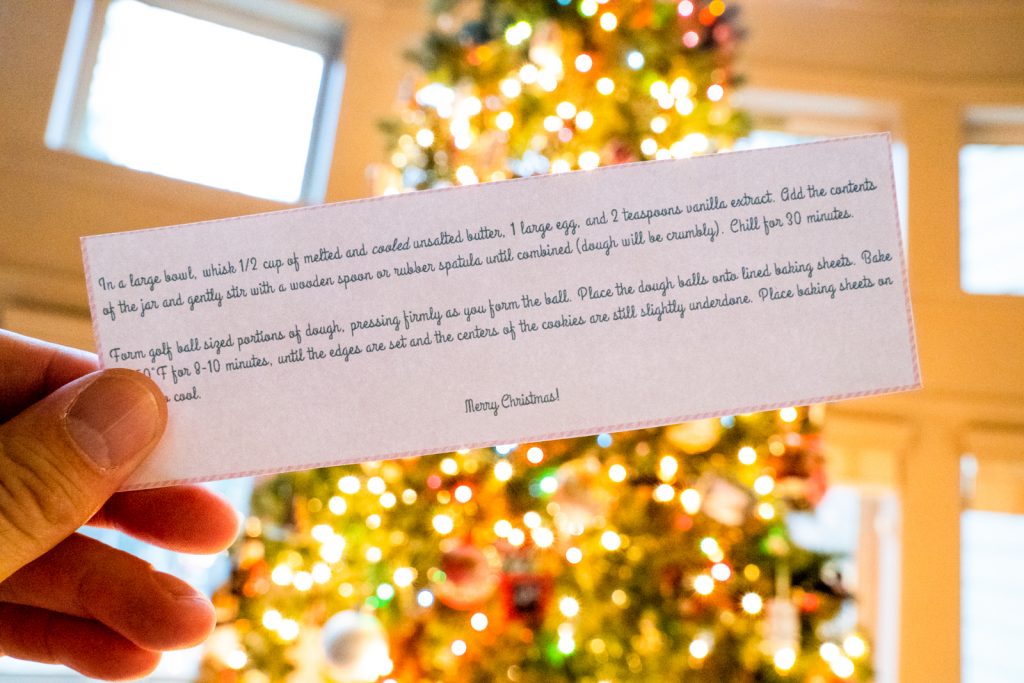 In a large bowl, whisk 1/2 cup of melted and cooled unsalted butter, 1 large egg, and 2 teaspoons vanilla extract. Add the contents
of the jar and gently stir with a wooden spoon or rubber spatula until combined (dough will be crumbly). Chill for 30 minutes.
Form golf ball sized portions of dough, pressing firmly as you form the ball. Place the dough balls onto lined baking sheets. Bake
50°F for 8-10 minutes, until the edges are set and the centers of the cookies are still slightly underdone. Place baking sheets on
cool.
Merry Christmas!